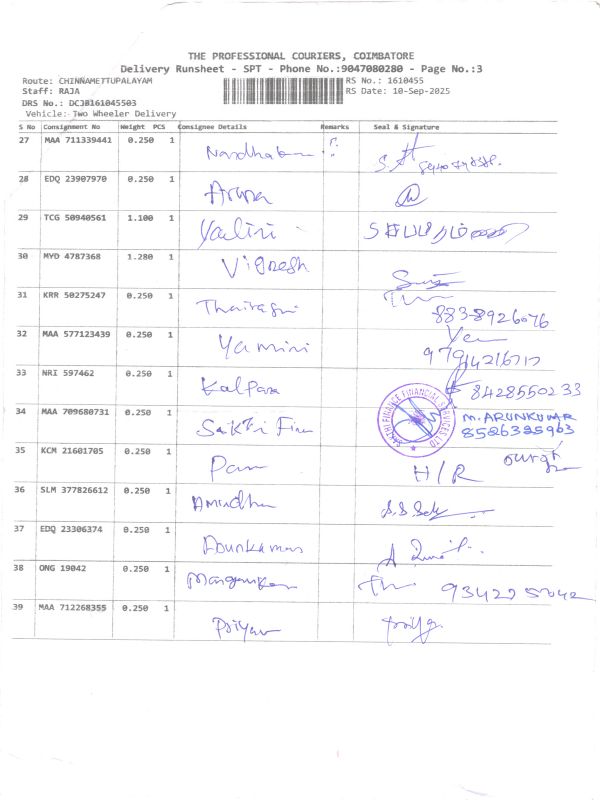 THE PROFESSIONAL COURIERS, COIMBATORE
Delivery Runsheet - SPT - Phone No.:9047080280 - Page No.:3
Route: CHINNAMETTUPALAYAM RS No.: 1610455
Staff: RAJA RS Date: 10-Sep-2025
DRS No.: DCJB161045503
Vehicle: Two Wheeler Delivery
S No Consignment No Weight PCS Consignee Details Remarks Seal & Signature
27 MAA 711339441 0.250 1
28 EDQ 23907970 0.250 1 Aruna
29 TCG 50940561 1.100 1 Yalini
30 MYO 4787368 1.280 1 Vignesh
31 KRR 50275247 0.250 1 8838926076
32 MAA 577123439 0.250 1 Yamini
33 NRI 597462 0.250 1 Kalpana 8428550233
34 MAA 709680731 0.250 1 Sakthi Fin SAKTHI FINANCE FINANCIAL SERVICES LTD M. ARUNKUMAR
8526325963
35 KCM 21601705 0.250 1 H/R
36 SLM 377826612 0.250 1 Amirdha
37 EDQ 23306374 0.250 1 Arunkumar
38 ONG 19042 0.250 1
39 MAA 712268355 0.250 1 Priya